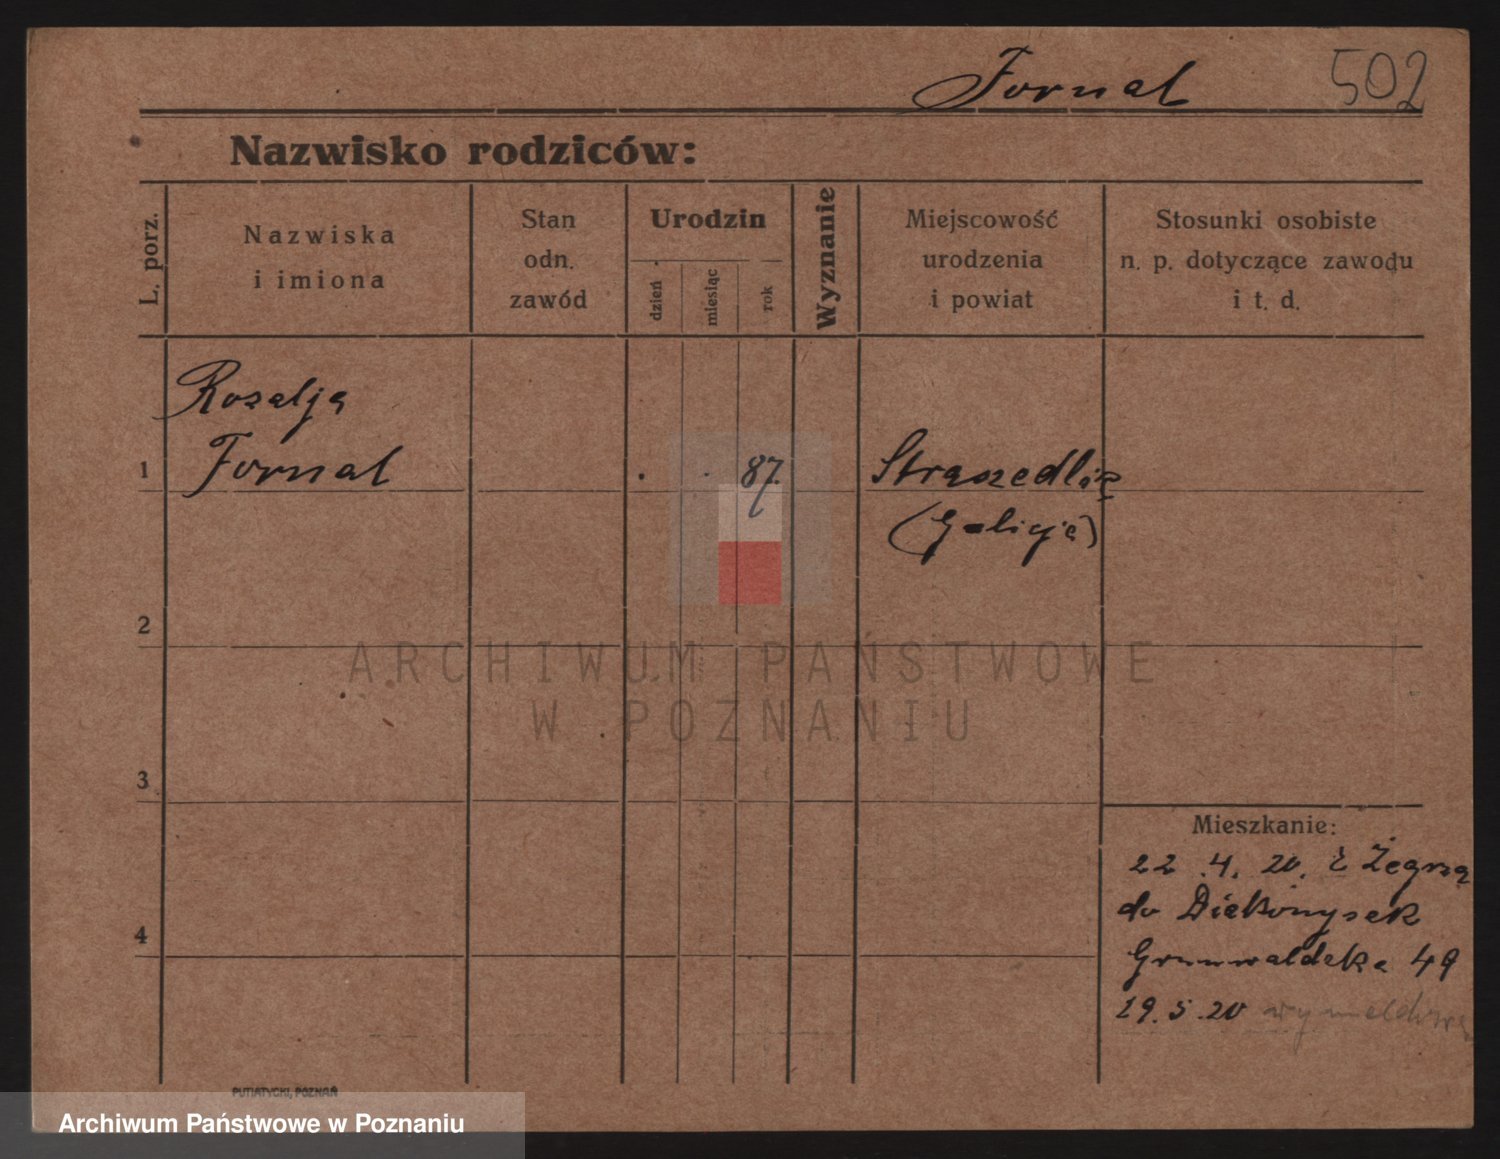 Fornal 502
Nazwisko rodziców:
L. porz.
Nazwiska
i imiona
Stan
odn.
zawód
Urodzin
dzień
miesiąc
rok
Wyznanie
Miejscowość
urodzenia
i powiat
Stosunki osobiste
n. p. dotyczące zawodu
i t. d.
Rozalja
1 Fornal . . 87.
(Galicja)
2
3
4
Mieszkanie:
22.4.20. z Żegrza
do
Grunwaldzka 49
19.5.20
PUTIATYCKI, POZNAŃ
ARCHIWUM PAŃSTWOWE
W POZNANIU
Archiwum Państwowe w Poznaniu